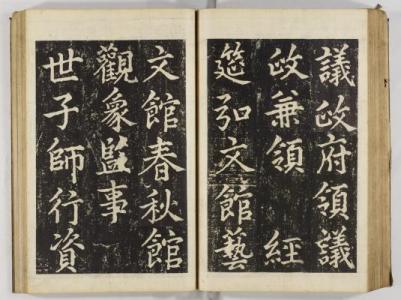 議政府領議
政兼領 經
筵弘文館藝
文館春秋館
觀象監事
世子師行資